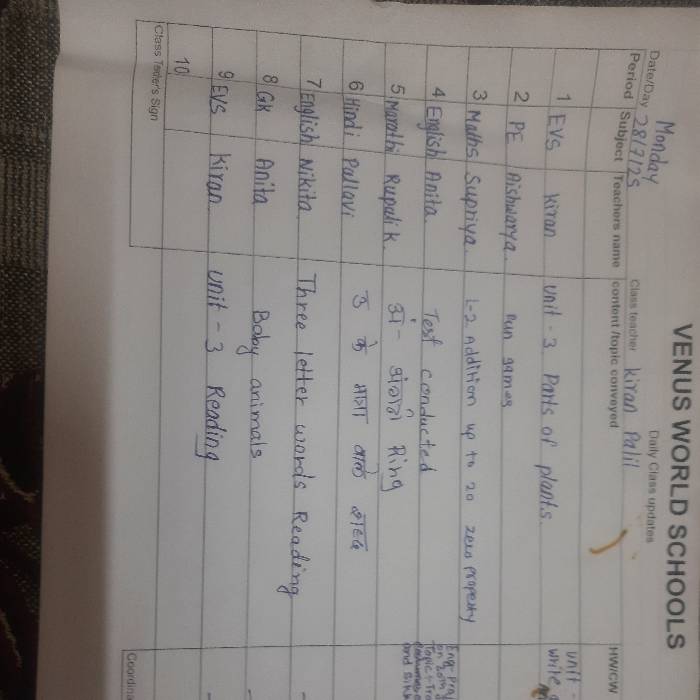 VENUS WORLD SCHOOLS
Daily Class updates
Date/Day Monday 28/7/25 Class teacher Kiran Patil
Period Subject Teachers name content /topic conveyed HW/CW
1 EVS Kiran unit - 3 Parts of plants. unit
2 PE Aishwarya Run games
3 Maths Supriya L-2 Addition up to 20 zero property
4 English Anita Test conducted
5 Marathi Rupali K. अं - अंगठी Ring
6 Hindi Pallavi शब्द
7 English Nikita Three letter words Reading
8 GK Anita Baby animals
9 EVS Kiran unit - 3 Reading
10
Class Teacher's Sign